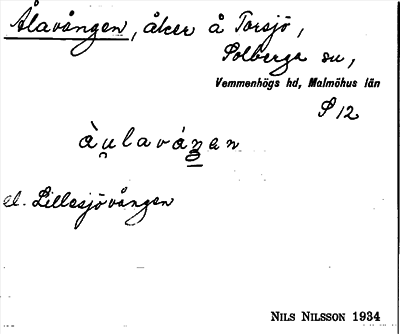 Ålavången, åker å Torsjö,
Solberga sn,
Vemmenhögs hd, Malmöhus län
S 12
àu̯laváŋen
el. Lillesjövången
NILS NILSSON 1934